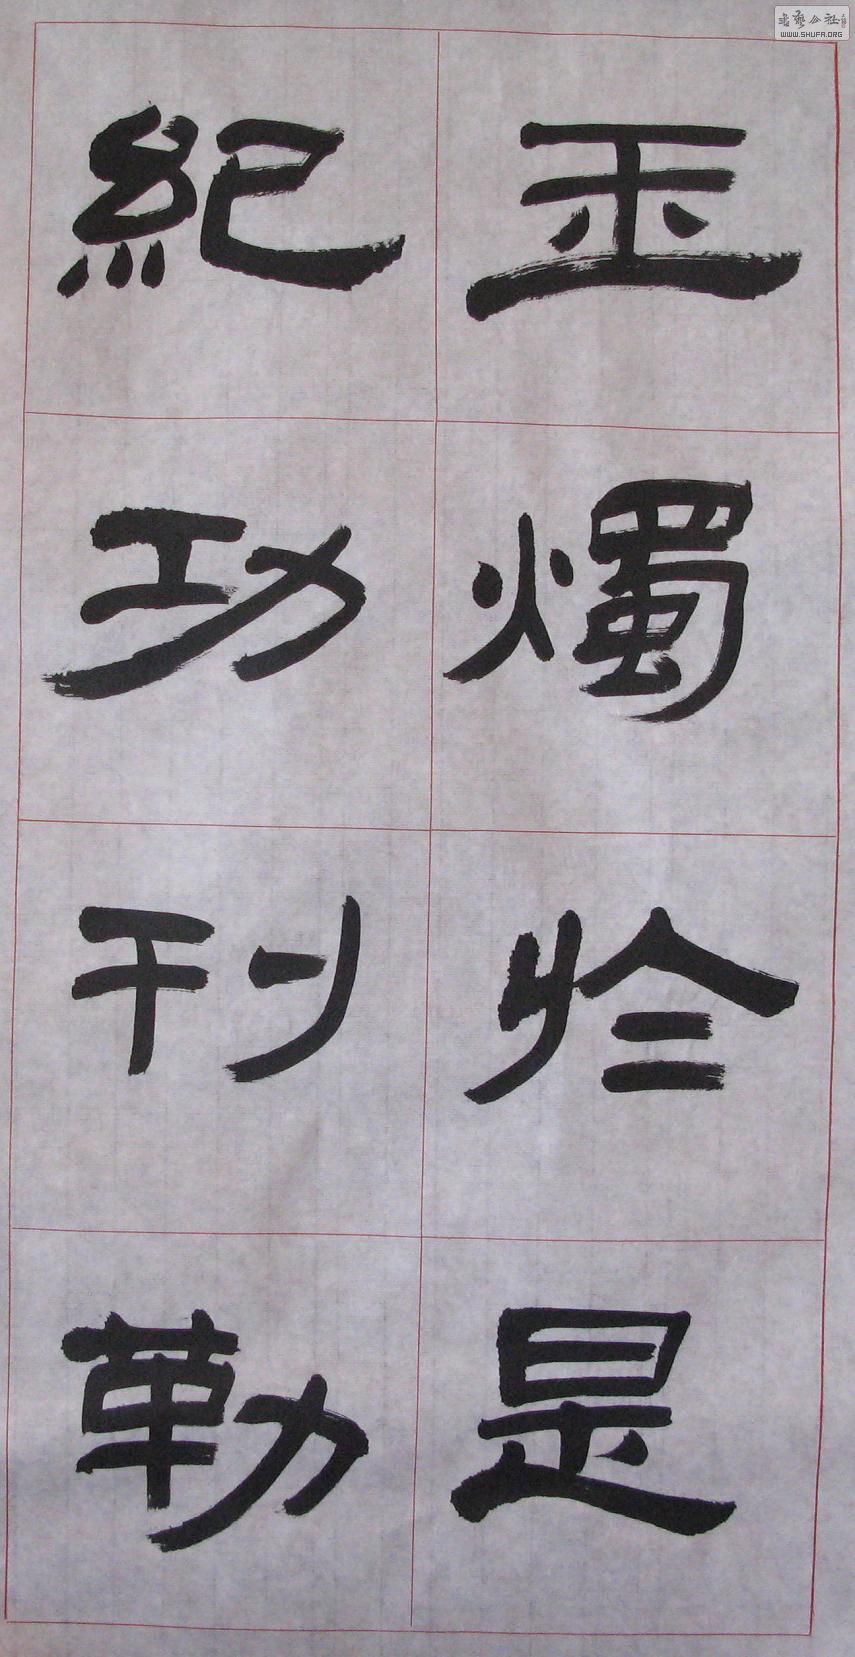 玉燭於是
紀功刊勒
書藝公社
WWW.SHUFA.ORG